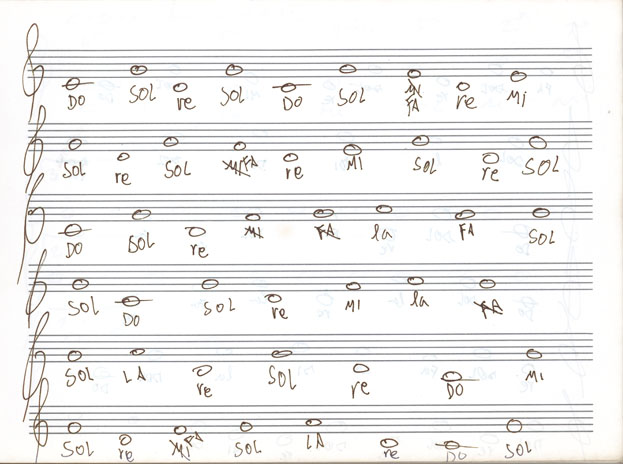 DO SOL re SOL DO SOL MI FA re MI
SOL re SOL MI FA re MI SOL re SOL
DO SOL re MI FA la FA SOL
SOL DO SOL re MI la FA
SOL LA re SOL re DO MI
SOL re MI FA SOL LA re DO SOL